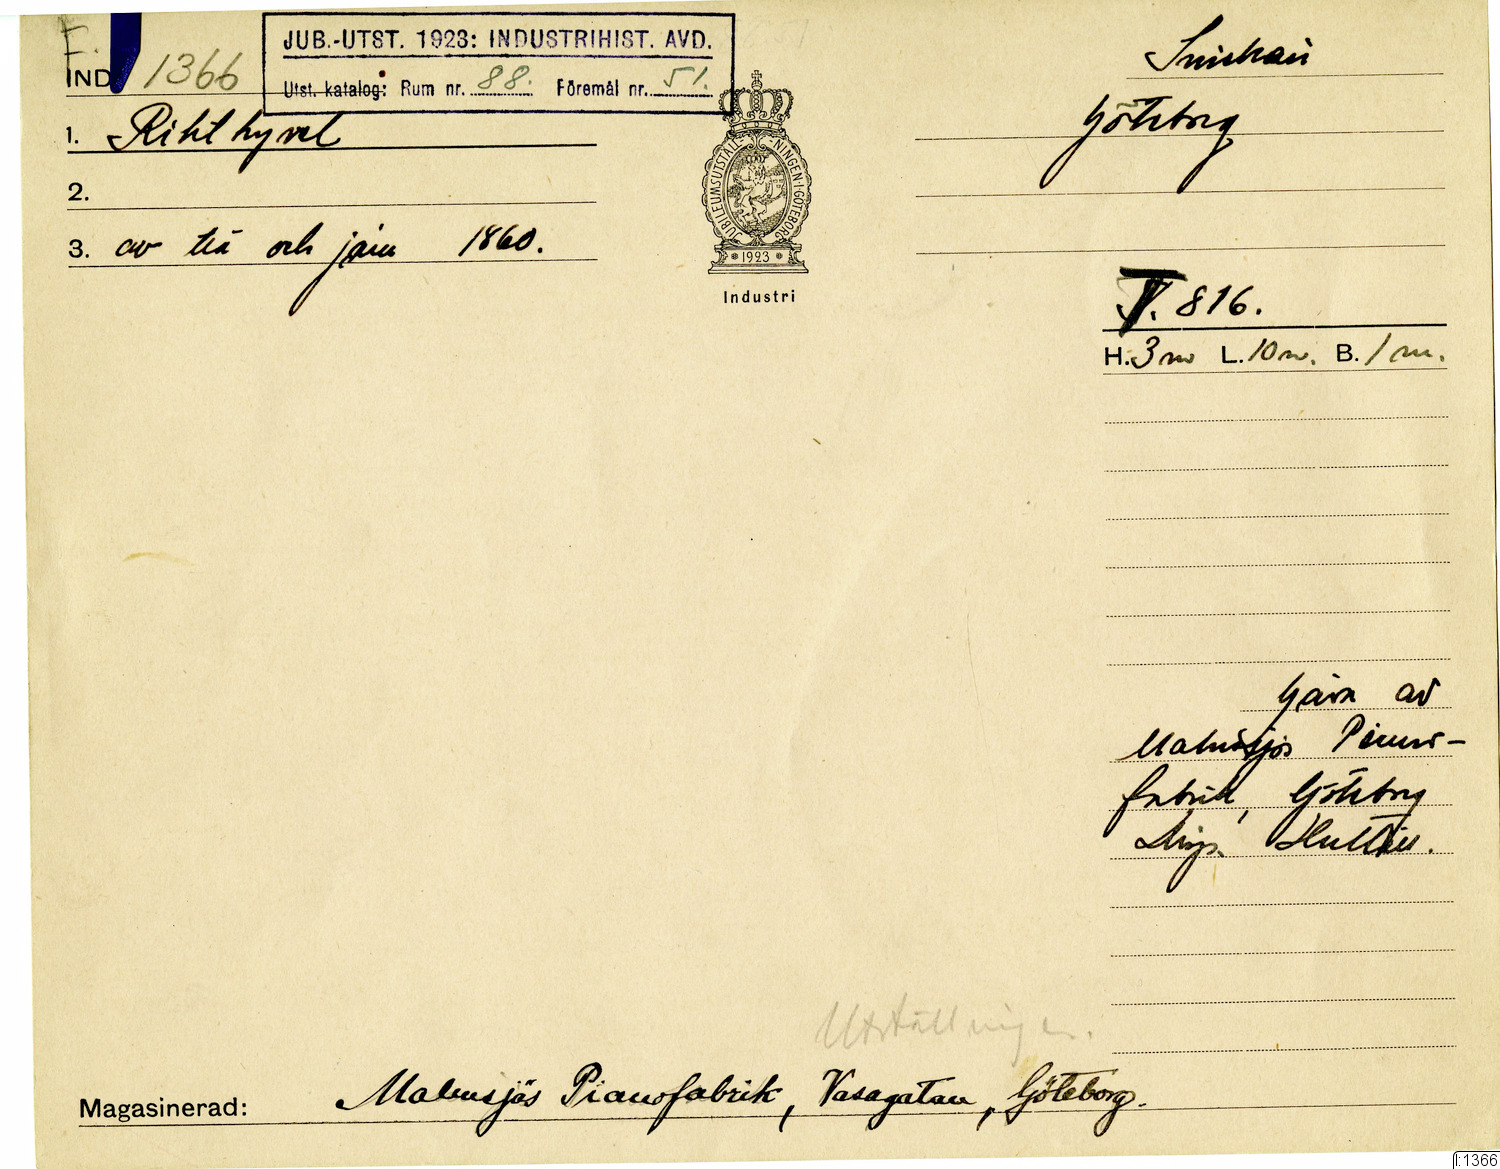 F.
IND. 1366
JUB.-UTST. 1923: INDUSTRIHIST. AVD.
Utst. katalog: Rum nr. 88. Föremål nr. 51.
Snickeri
Göteborg
1. Rikthyvel
2.
3. av trä och järn 1860.
JUBILEUMSUTSTÄLLNINGEN I GÖTEBORG
1923
Industri
V. 816.
H. 3 m L. 10 m. B. 1 m.
Gåva av
Malmsjös Piano-
fabrik, Göteborg
Disp. Hultén.
Utställningen.
Magasinerad: Malmsjös Pianofabrik, Vasagatan, Göteborg.
I:1366